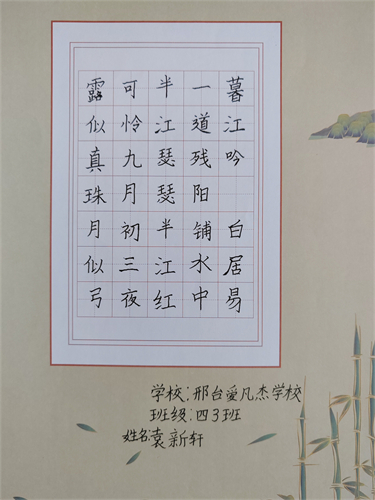 暮江吟 白居易
一道残阳铺水中
半江瑟瑟半江红
可怜九月初三夜
露似真珠月似弓
学校:邢台爱凡杰学校
班级:四3班
姓名:袁新轩